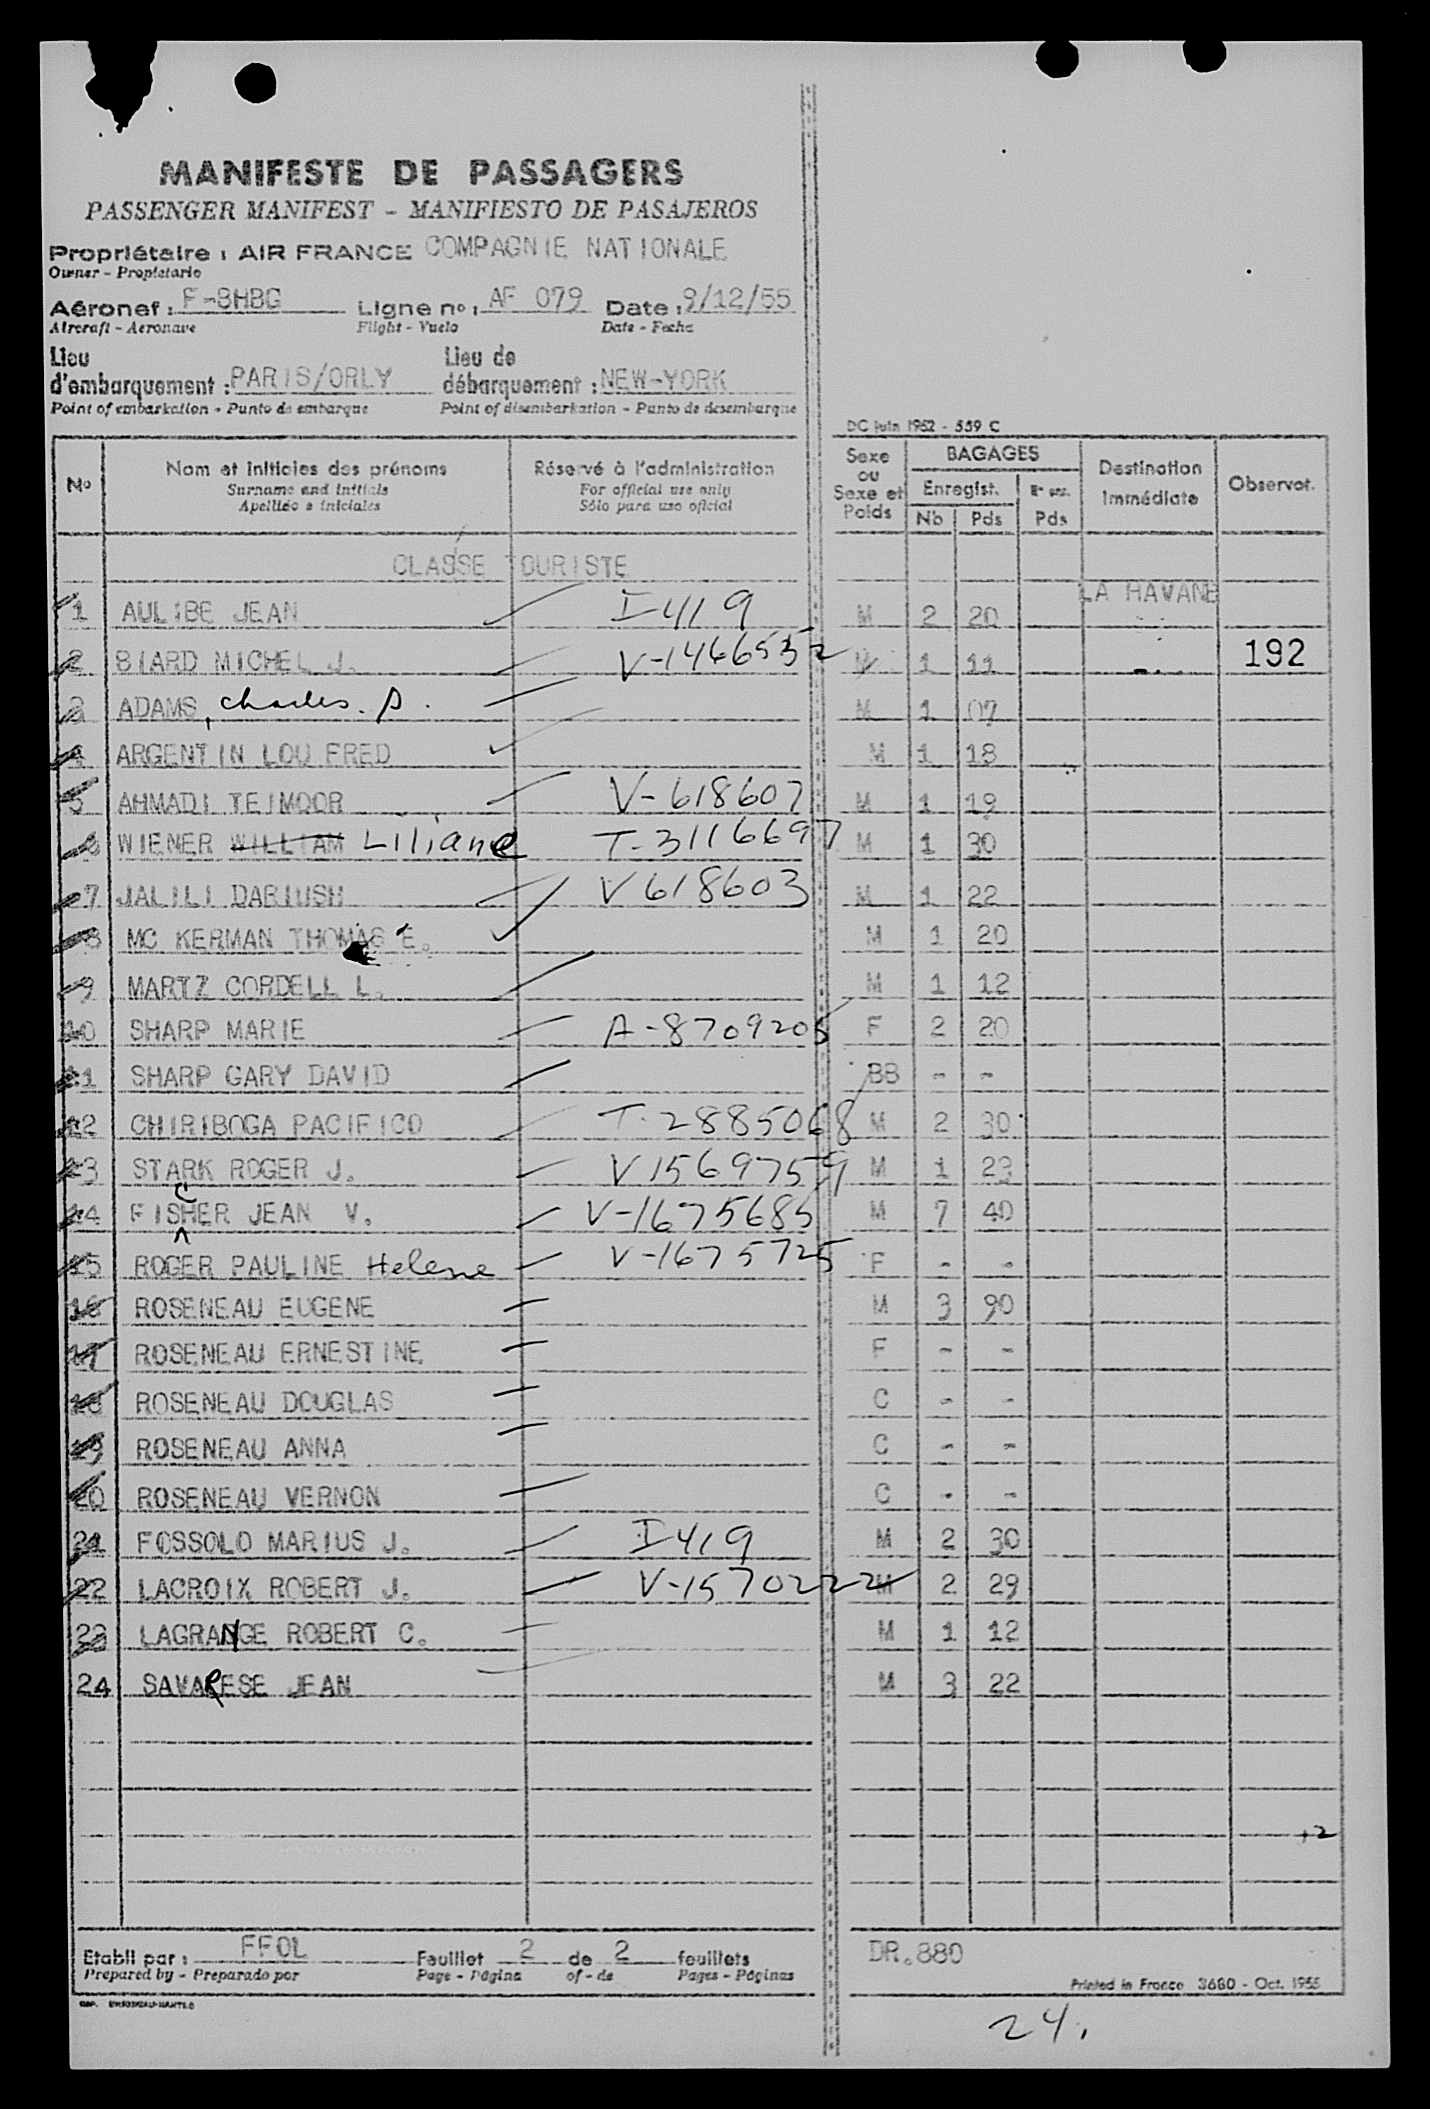 MANIFESTE DE PASSAGERS
PASSENGER MANIFEST - MANIFIESTO DE PASAJEROS
Propriétaire : AIR FRANCE COMPAGNIE NATIONALE
Owner - Propietario
Aéronef : F-BHBG Ligne no : AF 079 Date : 9/12/55
Aircraft - Aeronave Flight - Vuelo Date - Fecha
Lieu d'embarquement : PARIS/ORLY Lieu de débarquement : NEW-YORK
Point of embarkation - Punto de embarque Point of disembarkation - Punto de desembarque
DC juin 1952 - 559 C
No Nom et initiales des prénoms Réservé à l'administration Sexe ou Sexe et Poids BAGAGES Destination Immédiate Observat.
Surname and initials For official use only Enregist.
Apellido e iniciales Sólo para uso oficial Nb Pds Pds
CLASSE TOURISTE
LA HAVANE
1 AULIBE JEAN I-419 M 2 20
2 BIARD MICHEL J. V-1446532 M 1 11 192
3 ADAMS, Charles. A. M 1 07
4 ARGENTIN LOU FRED M 1 18
5 AHMADI TEIMOOR V-618607 M 1 19
6 WIENER WILLIAM Liliane T-3116697 M 1 30
7 JALILI DARIUSH V618603 M 1 22
8 MC KERMAN THOMAS E. M 1 20
9 MARTZ CORDELL L. M 1 12
10 SHARP MARIE A-8709205 F 2 20
11 SHARP GARY DAVID BB - -
12 CHIRIBOGA PACIFICO T-2885068 M 2 30
13 STARK ROGER J. V1569759 M 1 23
14 FISCHER JEAN V. V-1675685 M 7 40
15 ROGER PAULINE Helene V-1675725 F - -
16 ROSENEAU EUGENE M 3 90
17 ROSENEAU ERNESTINE F - -
18 ROSENEAU DOUGLAS C - -
19 ROSENEAU ANNA C - -
20 ROSENEAU VERNON C - -
21 FOSSOLO MARIUS J. I-419 M 2 30
22 LACROIX ROBERT J. V-1570222 M 2 29
23 LAGRANGE ROBERT C. M 1 12
24 SAVARESE JEAN M 3 22
+2
Etabli par : FFOL Feuillet 2 de 2 feuillets DR.880
Prepared by - Preparado por Page - Página of - de Pages - Páginas
Printed in France 3680 - Oct. 1955
24.